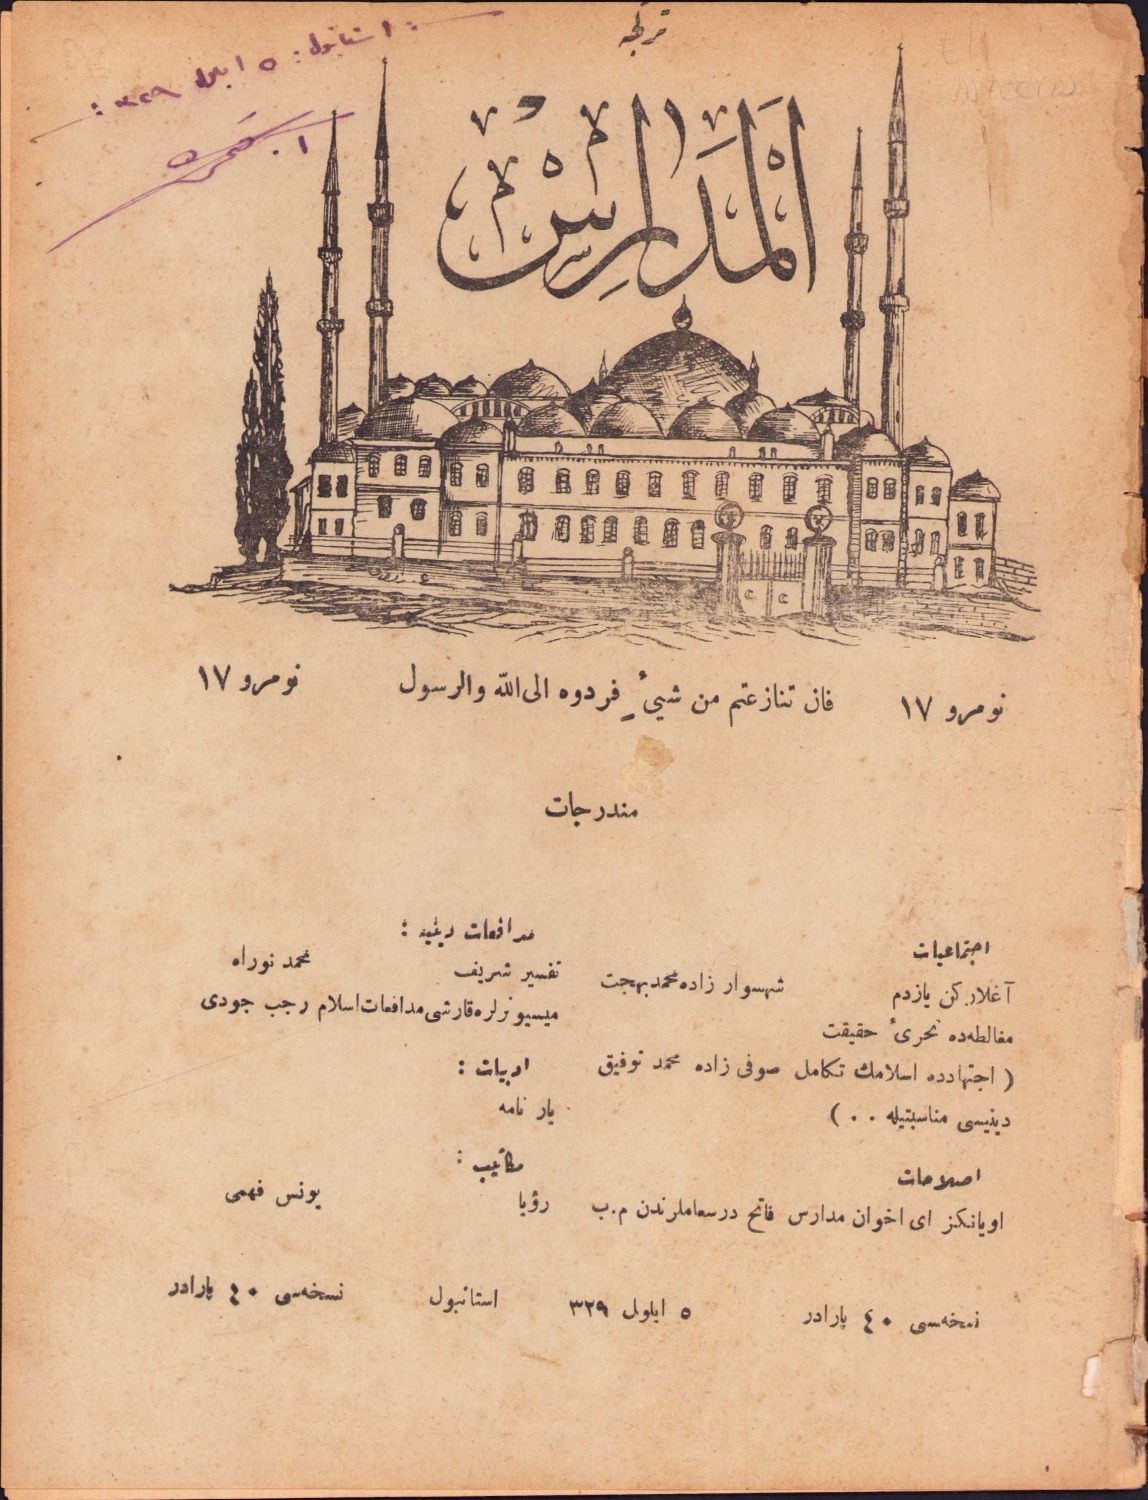 تركجه
: استانبول : ٥ ايلول ٣٢٩ :
المدارس
نومرو ١٧
فان تنازعتم من شيئٍ فردوه الى الله والرسول
نومرو ١٧
مندرجات
اجتماعيات
آغلاركن يازدم شهسوار زاده محمد بهجت
مغالطه‌ده تحرئ حقيقت
( اجتهادده اسلامك تكامل صوفى زاده محمد توفيق
دينيسى مناسبتيله . . )
اصلاحات
اويانكز اى اخوان مدارس فاتح درسعاملرندن م.ب
مدافعات دينيه :
تفسير شريف محمد نوراه
ميسيونرلره قارشى مدافعات اسلام رجب جودى
ادبيات :
يار نامه
مكاتيب :
رؤيا يونس فهمى
نسخه‌سى ٤٠ پارادر
٥ ايلول ٣٢٩
استانبول
نسخه‌سى ٤٠ پارادر